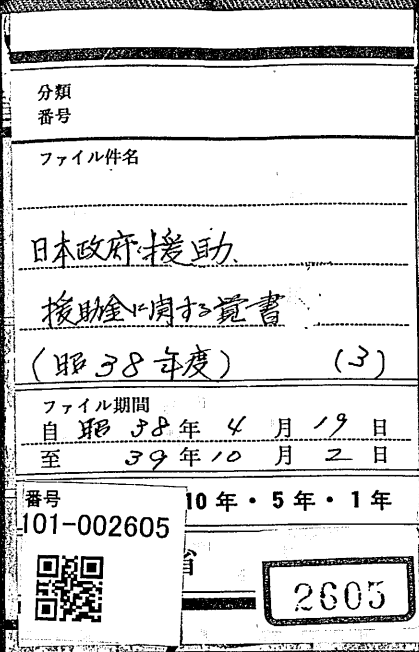 分類
番号
ファイル件名
日本政府援助、
援助金に関する覚書
(昭38年度) (3)
ファイル期間
自 昭 38年 4 月 19 日
至 39年10 月 2 日
10年・5年・1年
番号
101-002605
省
2605